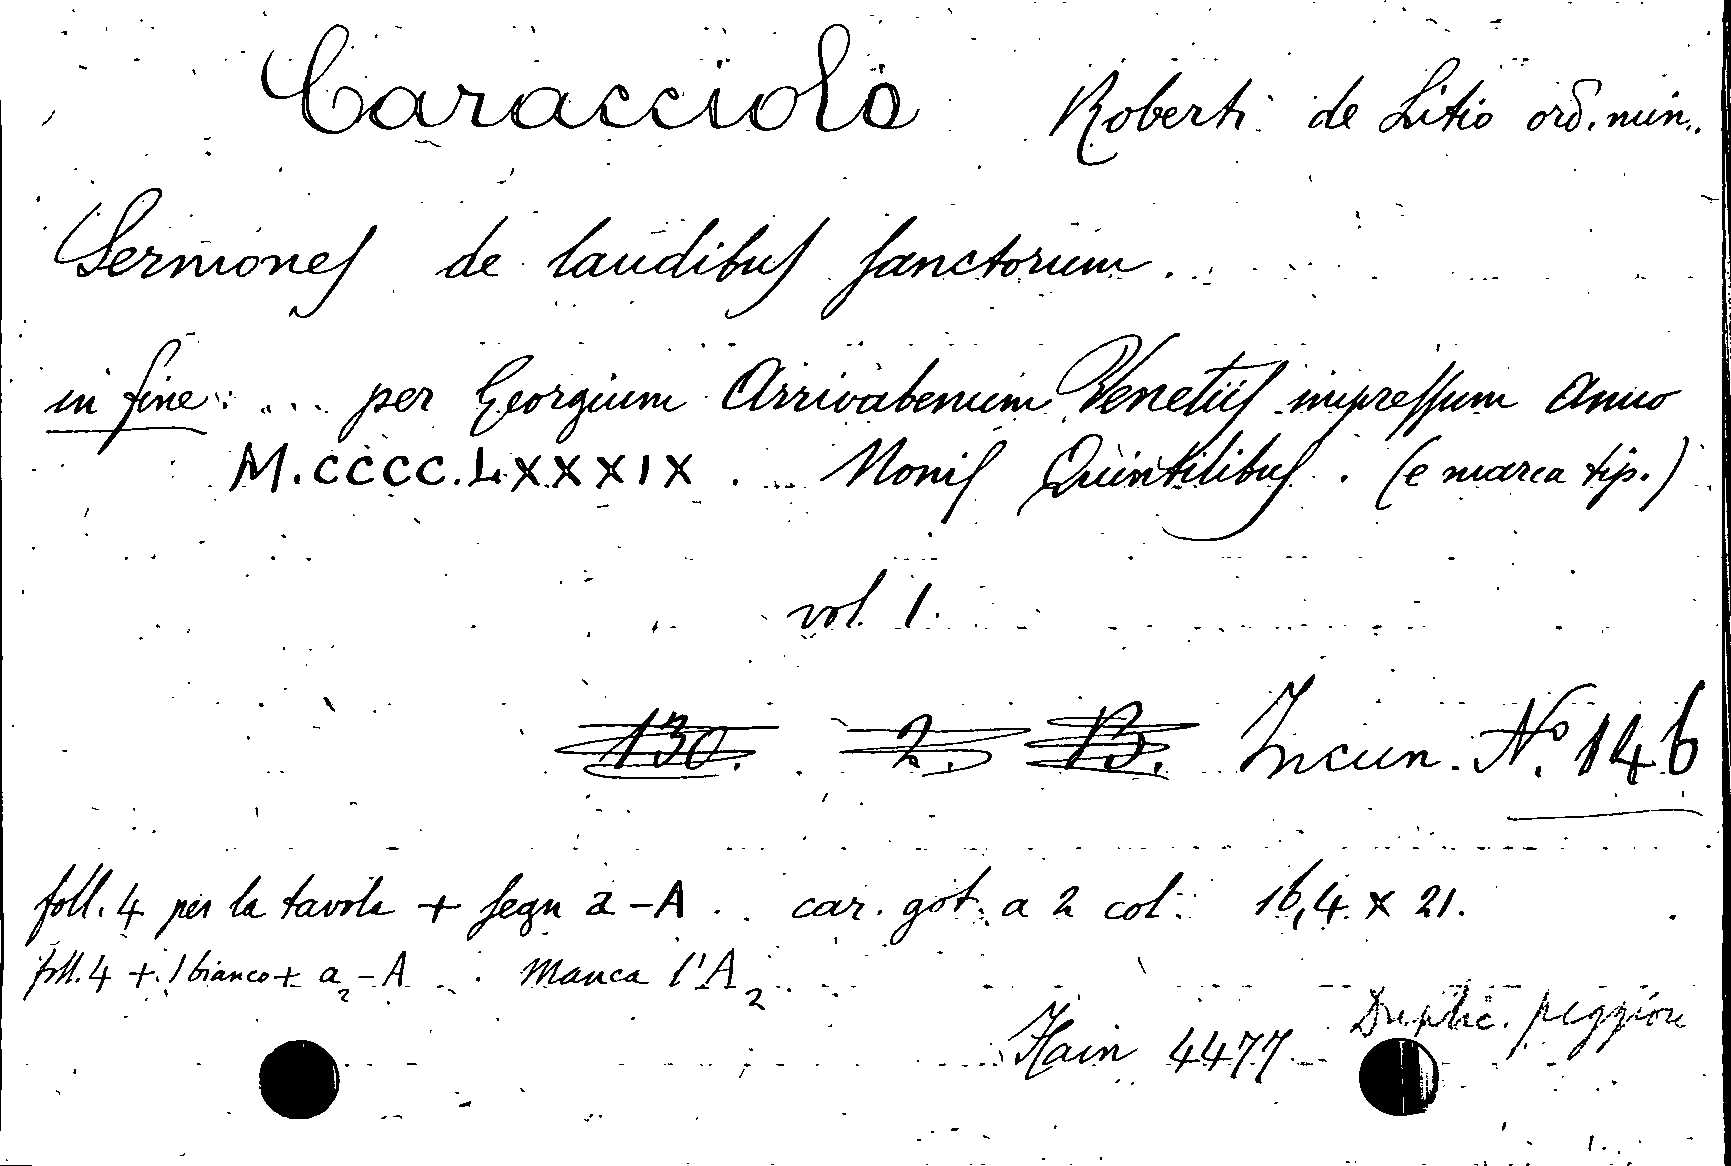 Caracciolo Roberti de Litio ord. min.
Sermones de laudibus sanctorum.
in fine: ... per Georgium Arrivabenum Venetiis impressum Anno
M.CCCC.LXXXIX. Nonis Quintilibus. (e marca tip.)
vol. 1.
130. 2. 13. Incun. No. 146
foll. 4 per la tavola + segn a - A. car. got. a 2 col. 16,4 x 21.
foll. 4 + 1 bianco + a2 - A. Manca l'A2
Duplic. peggiore
Hain 4477